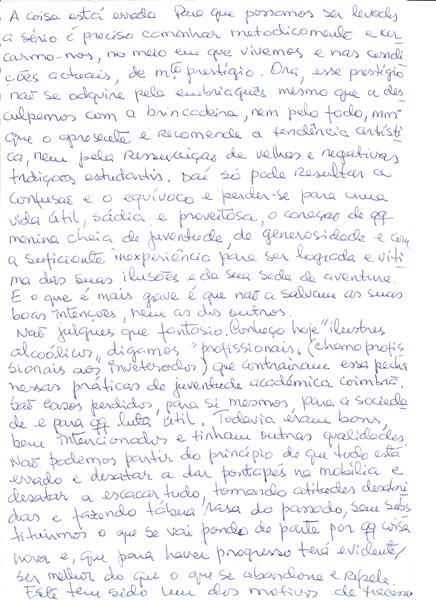 A coisa está errada Para que possamos ser levados
a sério é preciso caminhar metodicamente e cer
carmo-nos, no meio em que vivemos e nas condi
ções actuais, de mto prestígio. Ora, esse prestígio
não se adquire pela embriaguês mesmo que a des
culpemos com a brincadeira, nem pelo fado, mmo
que o apresente e recomende a tendência artísti
ca, nem pela ressurreição de velhas e negativas
tradições estudantis. Daí só pode resultar a
confusão e o equívoco e perder-se para uma
vida útil, sádia e proveitosa, o coração de qq
menina cheia de juventude, de generosidade e com
a suficiente inexperiência para ser lograda e víti
ma das suas ilusões e da sua sede de aventura.
E o que é mais grave é que não a salvam as suas
boas intenções, nem as dos outros.
Não julgues que fantasio. Conheço hoje "ilustres
alcoólicos", digamos "profissionais" (chamo profis
sionais aos inveterados) que contrairam essa pecha
nessas práticas de juventude académica coimbrã.
São casos perdidos, para si mesmos, para a socieda
de e para qq luta útil. Todavia eram bons,
bem intencionados e tinham outras qualidades.
Não podemos partir do princípio de que tudo está
errado e desatar a dar pontapés na mobília e
desatar a escacar tudo, tomando atitudes desabri
das e fazendo tábua rasa do passado, sem subs
tituirmos o que se vai pondo de parte por qq coisa
nova e, que para haver progresso terá evidente/
ser melhor do que o que se abandona e repele.
Este tem sido um dos motivos de fracasso